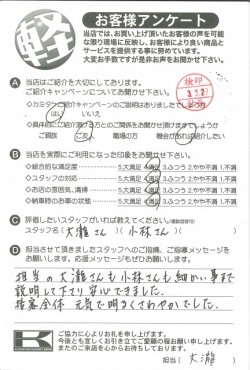 軽
お客様アンケート
当店では、お買い上げ頂いたお客様の声を可能
な限り現場に反映し、お客様により良い商品と
サービスを提供する事に努めています。
大変お手数ですが是非お声をお聞かせ下さい。
検印
A 当店はご紹介を大切にしております。
ご紹介キャンペーンについてお聞かせ下さい。
はい いいえ
ご親族 ご友人 職場の方 機会があれば紹介したい
B 当店を実際にご利用になった印象をお聞かせ下さい。
◇総合的な満足度 5.大満足 4.満足 3.ふつう 2.やや不満 1.不満
◇スタッフの対応 5.大満足 4.満足 3.ふつう 2.やや不満 1.不満
◇お店の雰囲気、清掃 5.大満足 4.満足 3.ふつう 2.やや不満 1.不満
◇納車時のお車の状態 5.大満足 4.満足 3.ふつう 2.やや不満 1.不満
C 評価したいスタッフがいれば教えてください。
スタッフ名(大瀧さん)(小林さん)
D 当店と担当させて頂きましたスタッフへのご指摘、ご指導メッセージを
お願いします。応援メッセージもぜひお願い致します。
担当の大瀧さんも小林さんも細かい事まで
説明して下さり安心できました。
接客全体 元気で明るくさわやかでした。
K
ご協力に心よりお礼を申し上げます。
今後とも宜しくお引き立てご愛顧の程お願い申し上げます。
またのご来店を心よりお待ちしております。
担当(大瀧)